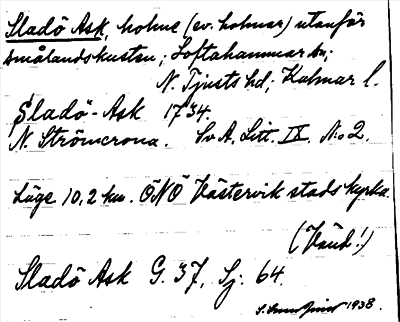 Sladö Ask, holme (ev. holmar) utanför
Smålandskusten; Loftahammar sn;
N. Tjusts hd; Kalmar l.
Sladö-Ask 1734.
N. Strömcrona. Sv A. Litt. IX. No 2.
Läge 10,2 km. ÖNÖ Västervik stads kyrka.
(Vänd!)
Sladö Ask G. 37, Sj. 64.
1938.